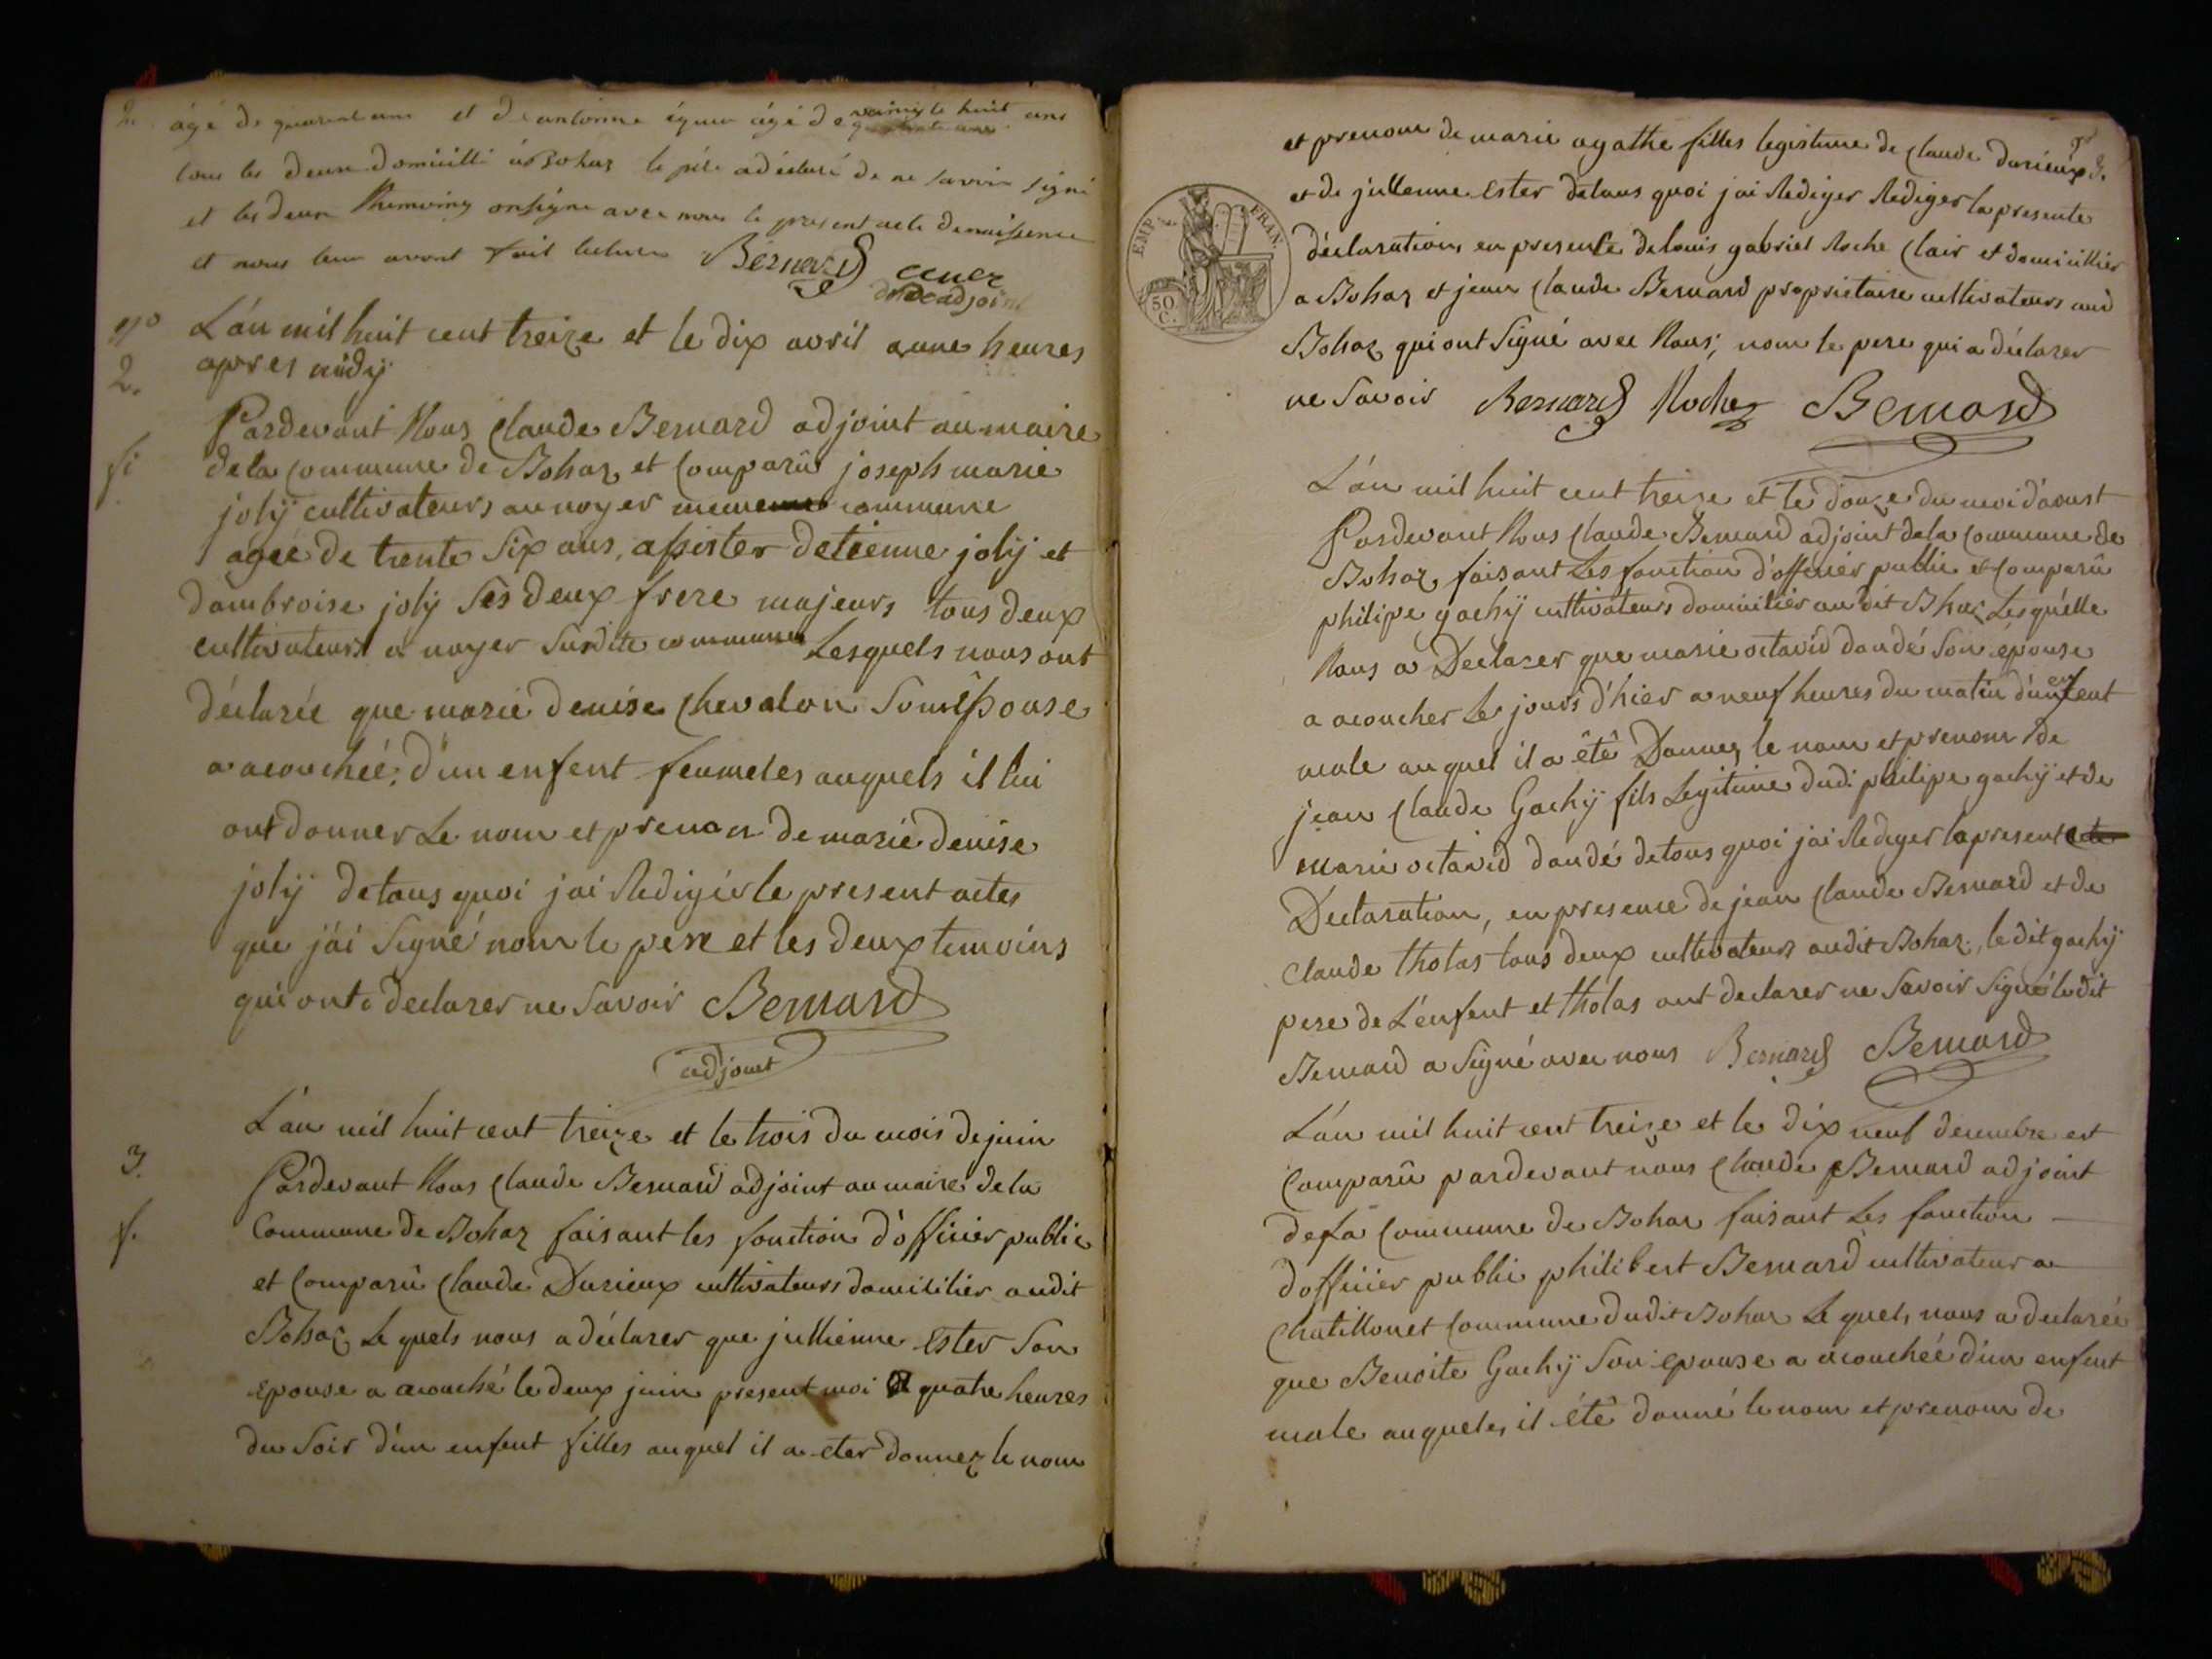 2.
âgé de quarent ans et de antoinne éguer âgé de vaingte huit ans
tous les deux domicilli à Bohaz le père a déclaré de ne savoir signé
et les deux themoins on signe avec nous le present acte de naissence
et nous leur avont fait lecture Bernard
adjoint
no L'án mil huit cent treize et le dix avril a une heures
2. apres midÿ
Pardevant Nous Claude Bernard adjoint au maire
fi de la Commune de Bohaz et Comparû joseph marie
jolÿ cultivateurs au noyer meme commune
agée de trente Six ans, assister detienne jolÿ et
dambroise jolÿ Ses deux frere majeurs tous deux
cultivateurs a noyer Susdite commune Lesquels nous ont
déclarée que marie denise Chevalon Son Epouse
a acouchée, d'un enfent feumeles auquels il lui
ont donner Le nom et prenon de marie denise
jolÿ de tous quoi jai Redigér le present actes
que j'ái Signé nom le pere et les deux temoins
qui ont declarer ne Savoir Bernard
adjoint
L'án mil huit cent treize et le trois du mois de juin
3. Pardevant Nous Claude Bernard adjoint au maire de la
f. Commune de Bohaz faisant les fonction d'officier public
et Comparû Claude Durieux cultivateurs domicilier audit
Bohaz Le quels nous a déclarer que jullienne Ester Son
Epouse a acouché le deux juin present moi a quatre heures
du Soir d'un enfent filles auquel il a eter donnez le nom
3.
et prenom de marie agathe filles legistime de Claude durieux
et de jullenne Ester de tous quoi jai Rediger Rediger la presente
déclaration, en presente de louis gabriel Roche Clair et domicillier
a Bohaz et jean Claude Bernard propriétaire cultivateurs aud
Bohaz qui ont Signé avec Nous, nom le pere qui a déclarer
ne Savoir Bernard Roche Bernard
EMP. FRAN.
50 C.
L'án mil huit cent treize et le douze du moi d'aoust
Pardevant Nous Claude Bernard adjoint de la Commune de
Bohaz, faisant Les fonction d'officier public et Comparû
philipe gachÿ cultivateurs domicilier au dit Bhaz Lesquélle
Nous a Declarer que marie octavid daudé Son épouse
a acoucher Le jours d'hier a neuf heures du matin d'un enfent
male auquel il a êtê Donnez le nom et prenom de
jean Claude Gachÿ fils Legitime dud. philipe gachÿ et de
marie octavid daudé de tous quoi jai Rediger la present
Declaration, en presence de jean Claude Bernard et de
Claude tholas tous deux cultivateurs audit Bohaz, le dit gachÿ
pere de L'énfent et tholas ont declarer ne Savoir Signé ledit
Bernard a Signé avec nous Bernard Bernard
L'án mil huit cent treize et le dix neuf decembre est
Comparû pardevant nous Claude Bernard adjoint
de La Commune de Bohaz faisant Les fonction
d'officier public philibert Bernard cultivateur a
Chatillonet Commune dudit Bohaz Le quel, nous a declarée
que Benoite Gachÿ Son epouse a acouchéé d'un enfent
male auqueles il été donné le nom et prenom de